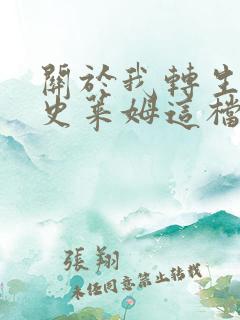 關於我轉生
史萊姆這檔
張翔
未經同意禁止轉載